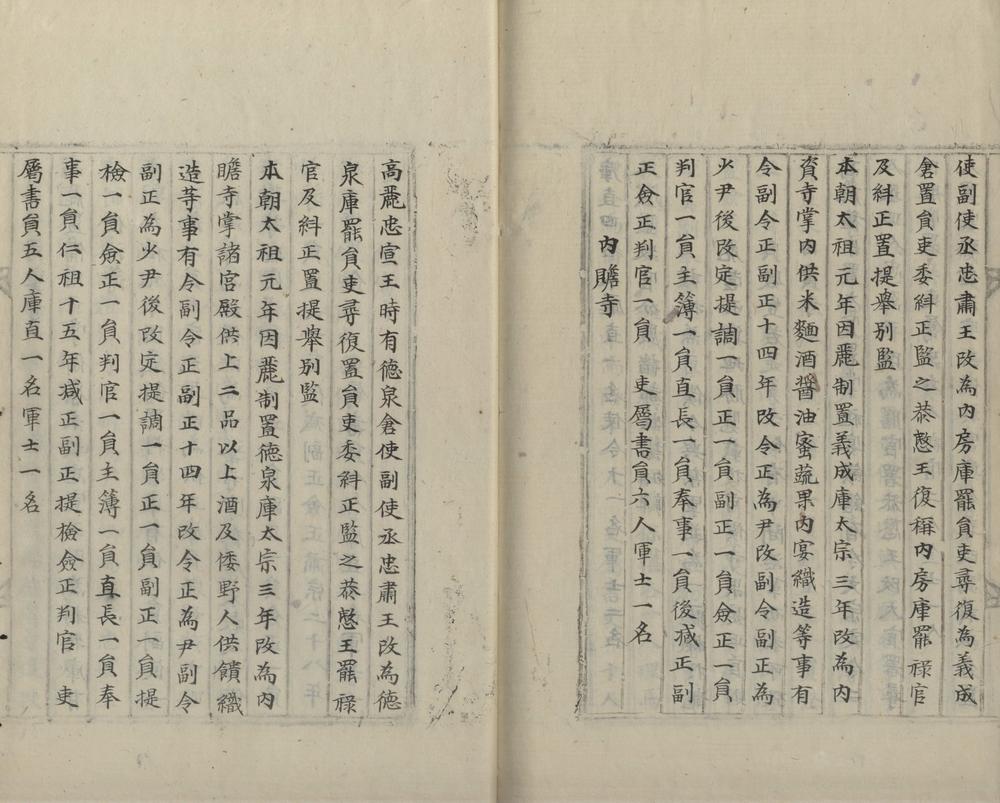 使副使丞忠肅王改為內房庫罷負吏尋復為義成
倉置負吏委糾正監之恭愍王復稱內房庫罷祿官
及糾正置提舉別監
本朝太祖元年因麗制置義成庫太宗三年改為內
資寺掌內供米麵酒醬油蜜蔬果內宴織造等事有
令副令正副正十四年改令正為尹改副令副正為
少尹後改定提調一負正一負副正一負僉正一負
判官一負主簿一負直長一負奉事一負後减正副
正僉正判官一負 吏屬書負六人軍士一名
內贍寺
高麗忠宣王時有德泉倉使副使丞忠肅王改為德
泉庫罷負吏尋復置負吏委糾正監之恭愍王罷祿
官及糾正置提舉別監
本朝太祖元年因麗制置德泉庫太宗三年改為內
贍寺掌諸宮殿供上二品以上酒及倭野人供饋織
造等事有令副令正副正十四年改令正為尹副令
副正為少尹後改定提調一負正一負副正一負提
檢一負僉正一負判官一負主簿一負直長一負奉
事一負仁祖十五年减正副正提檢僉正判官 吏
屬書負五人庫直一名軍士一名